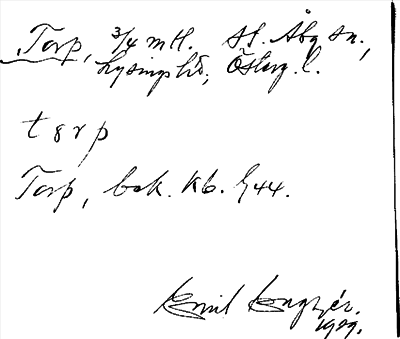 Torp, 3/4 mtl. St. Åby sn,
Lysings hd, Österg. l.
tɛrp
Torp, bok. Kb. 1744.
Emil
1909.